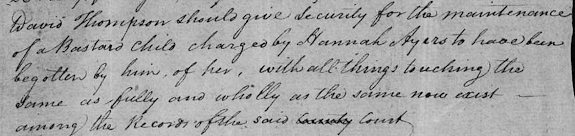 David Thompson should give Security for the maintenance
of a Bastard Child charged by Hannah Ayers to have been
begotten by him, of her, with all things touching the
same as fully and wholly as the same now exist —
among the Records of the said County Court